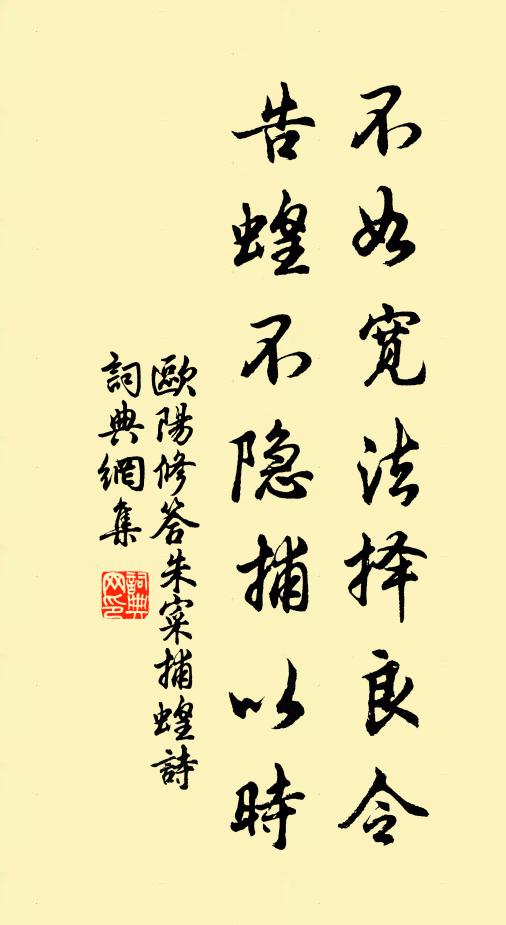 不如寬法择良令
告蝗不隐捕以時
歐陽修答朱寀捕蝗詩
詞典網集
詞典
网印